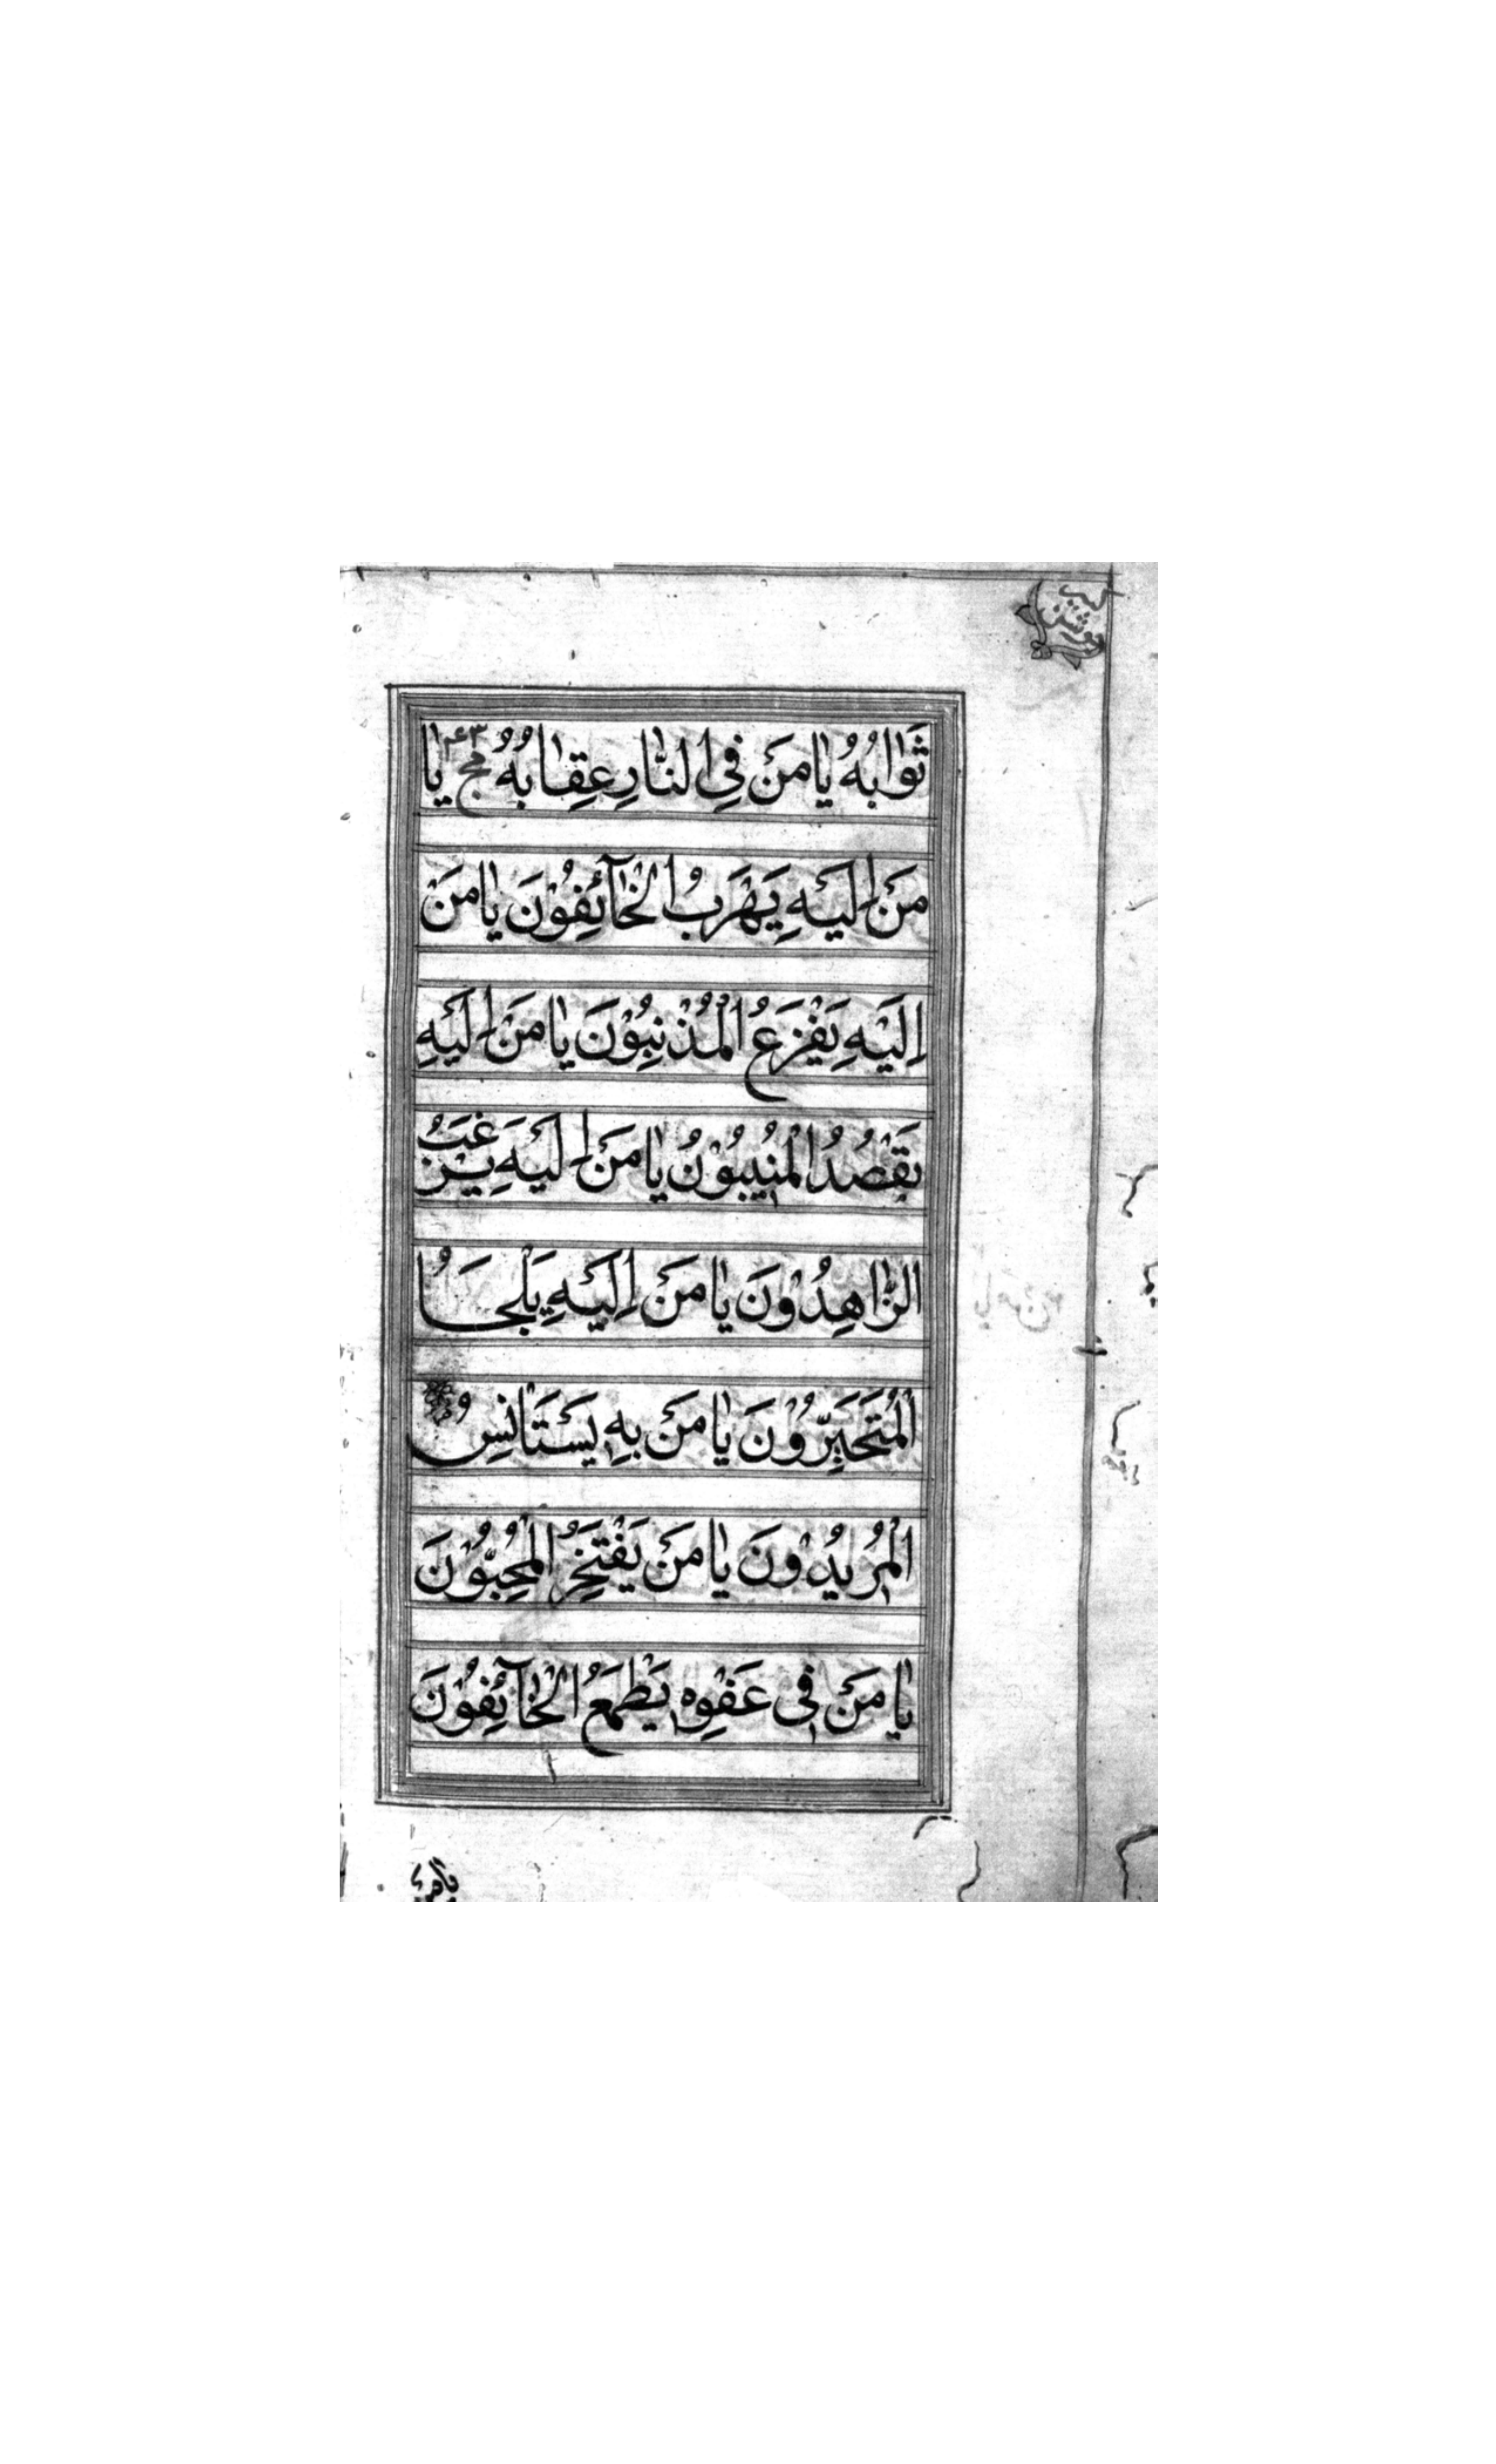 ثَوٰابُهُ يٰا مَنْ فِي النّٰارِ عِقٰابُهُ مج ۴۳ يٰا
مَنْ اِلَيْهِ يَهْرَبُ الْخٰٓائِفُوْنَ يٰا مَنْ
اِلَيْهِ يَفْزَعُ الْمُذْنِبُوْنَ يٰا مَنْ اِلَيْهِ
يَقْصُدُ الْمُنيبُوْنُ يٰا مَنْ اِلَيْهِ يَرْغَبُ
الزّٰاهِدُوْنَ يٰا مَنْ اِلَيْهِ يَلْجَاُ
الْمُتَحَيِّرُوْنَ يٰا مَنْ بِهِ يَسْتَانِسُ
الْمُريدُوْنَ يٰا مَنْ يَفْتَخِرُ الْمُحِبُّوْنَ
يٰا مَنْ في عَفْوِه يَطْمَعُ الْخٰٓائِفُوْنَ
يا من